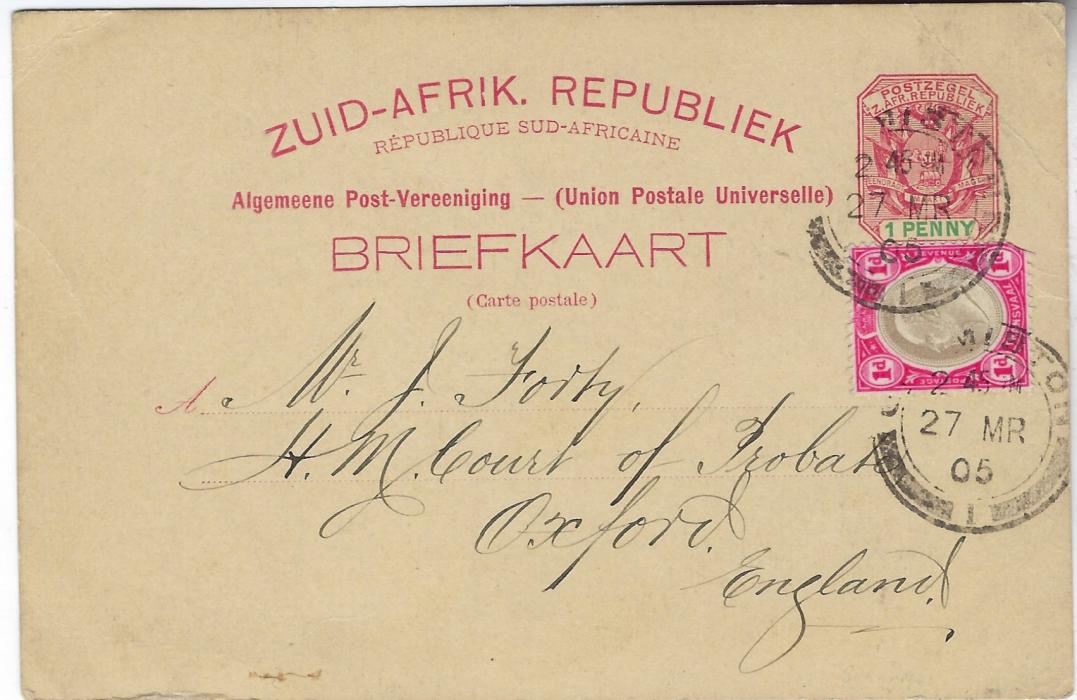 ZUID-AFRIK. REPUBLIEK
RÉPUBLIQUE SUD-AFRICAINE
Algemeene Post-Vereeniging — (Union Postale Universelle)
BRIEFKAART
(Carte postale)
POSTZEGEL
Z. AFR. REPUBLIEK
EENDRAGT MAGT
1 PENNY
2 45 PM
27 MR
05
1
REVENUE
1d 1d
1d 1d
POSTAGE
2 45
27 MR
05
1
A Mr. J. Forty,
H. M. Court of Probate
Oxford.
England.